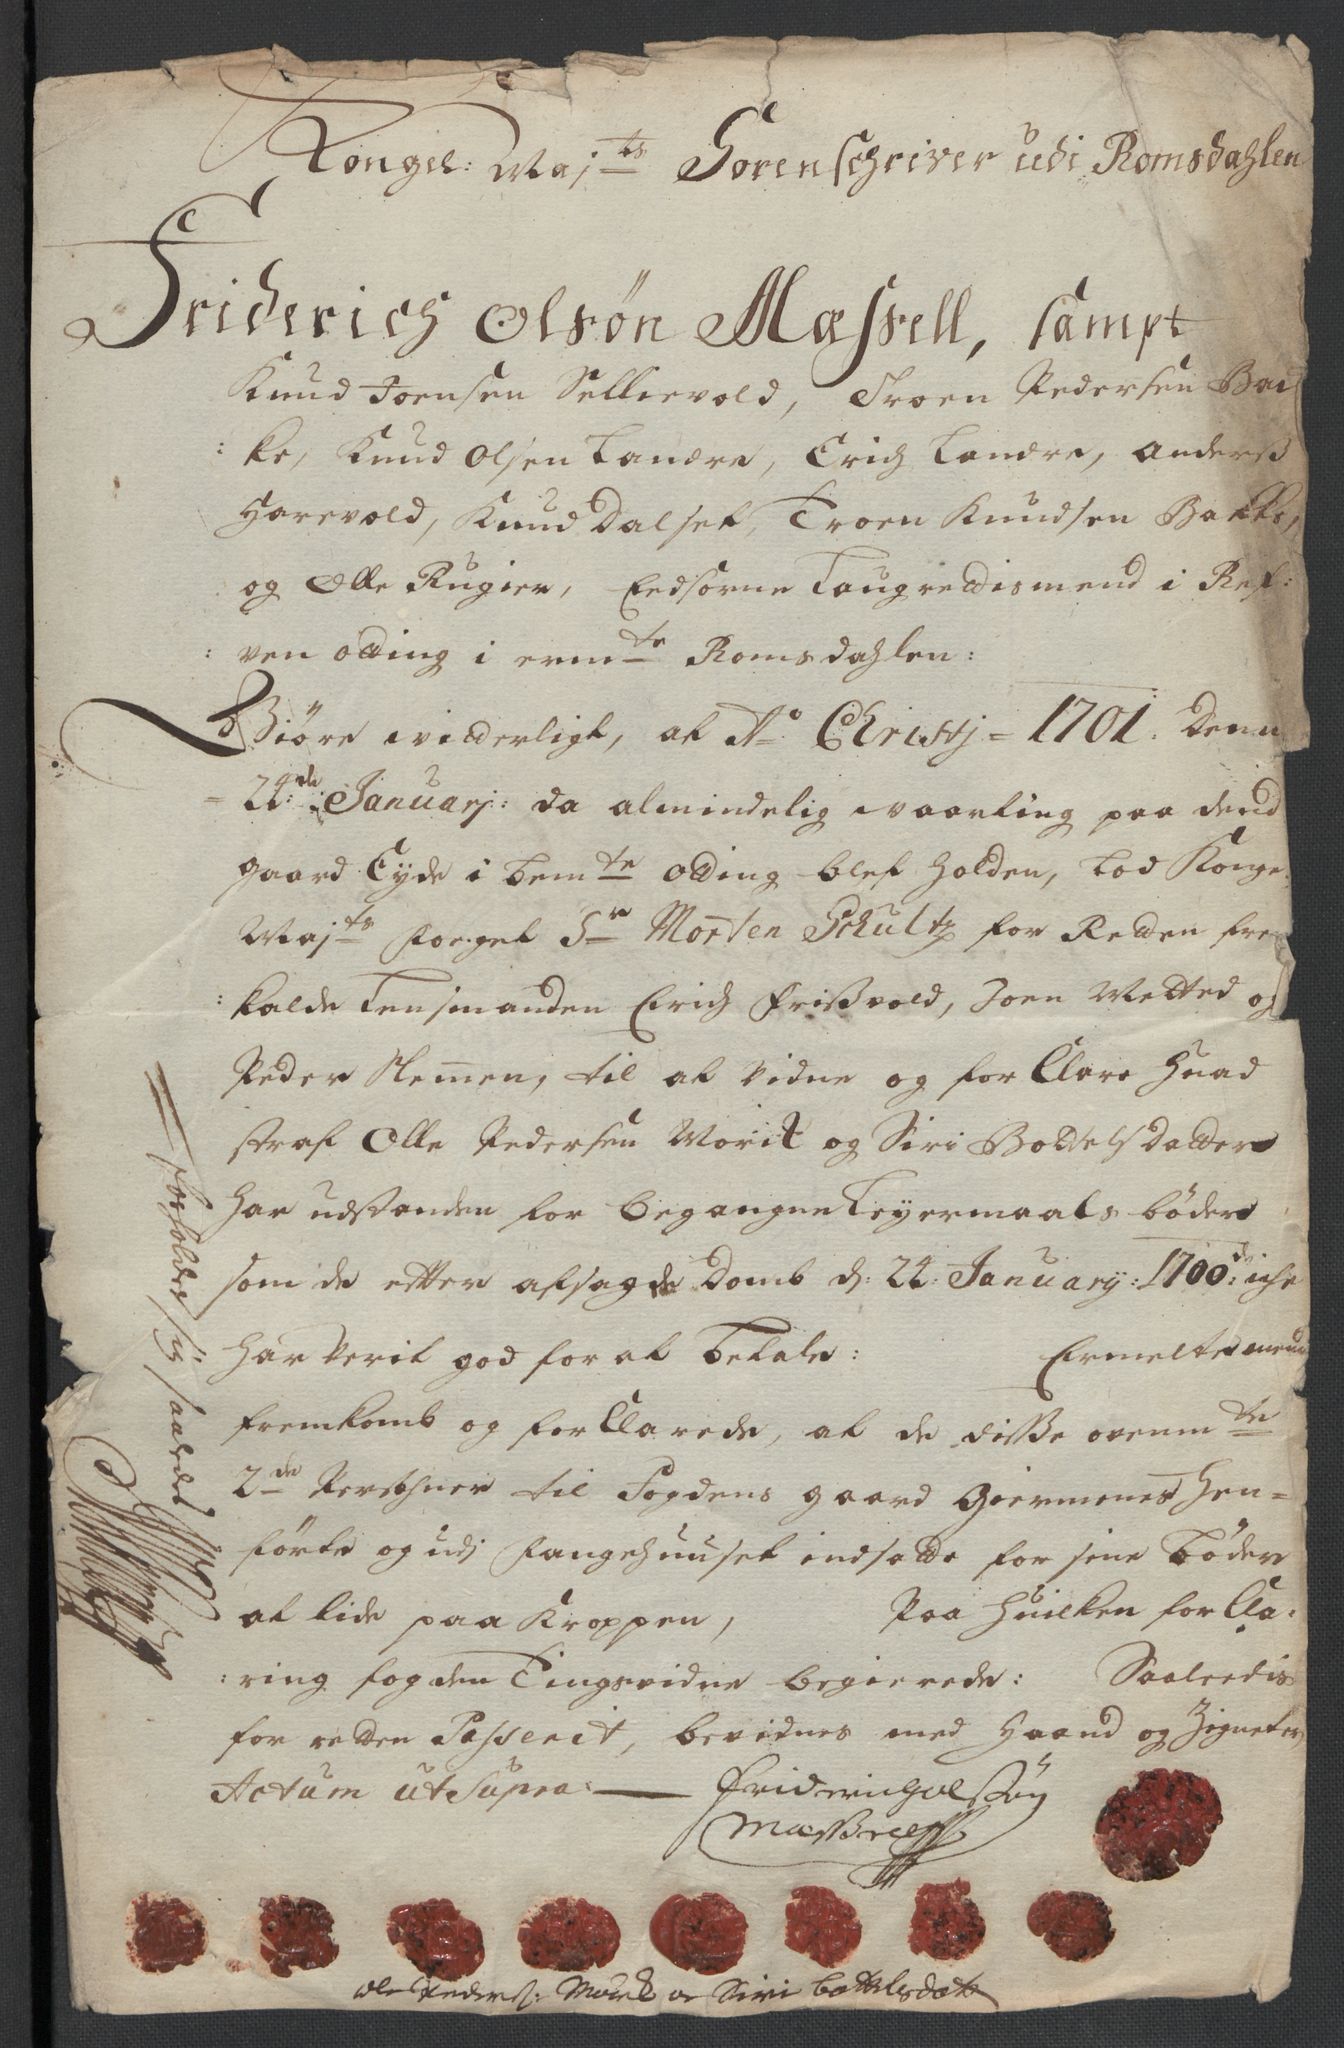 Kongel: Maj:ts Sorenschriver udi Romsdahlen
Friderich Olsøn Mæssell, sampt
Knud Joensen Sellievold, Troen Pedersen Bac
:ke, Knud Olsen Landre, Erich Landre, Anderß
Harevold, Knud Dalset, Troen Knudsen Bakke,
og Olle Rugier, Eedsorne Laugrettismend i Ref:
:ven otting i erm:te Romsdahlen:
Giøre vitterligt, at A:o Christj = 1701. Denn
24:de Januarj: da almindelig vaarting paa dend
gaard Eyde i bem:te otting blef holden, lod Konge:
Maj:ts Foeget S:r Morten Schultz for Retten frem
:kalde Lensmanden Erich Frißvold, Joen Mætted og
Peder Nemen, til at vidne og for Clare huad
straf Olle Pedersen Morit og Siri Bottels datter
har udstanden for begangne Leyermaals bøder
som de etter afsagde Domb d: 24: Januarij: 1700: iche
har verit god for at betale: Ermelte mend
fremkomb og for Clarede, at de disse ovenm:te
2:de Persohner til Fogdens gaard Giermones hen=
førte og udj fangehuuset indsatte for sine bøder
at lide paa Kroppen, Paa huilken for Cla:
:ring fogden Tingsvidne begierede: Saaleedis
for retten Passerit, bevidnes med Haand og Zigneter,
Actum ut supra:
Friderich Olsøn
Mæssell
Ole Peders: Morit oc Siri Bottelsdatt
forholder sig saaledes